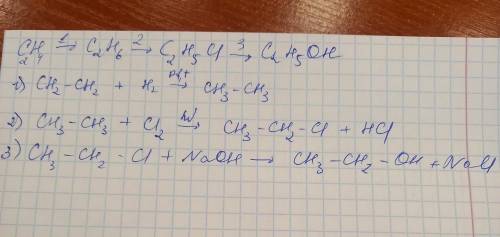 C₂H₄ ¹→ C₂H₆ ²→ C₂H₅Cl ³→ C₂H₅OH
1) CH₂-CH₂ + H₂ → CH₃-CH₃
2) CH₃-CH₃ + Cl₂ hν→ CH₃-CH₂-Cl + HCl
3) CH₃-CH₂-Cl + NaOH → CH₃-CH₂-OH + NaCl